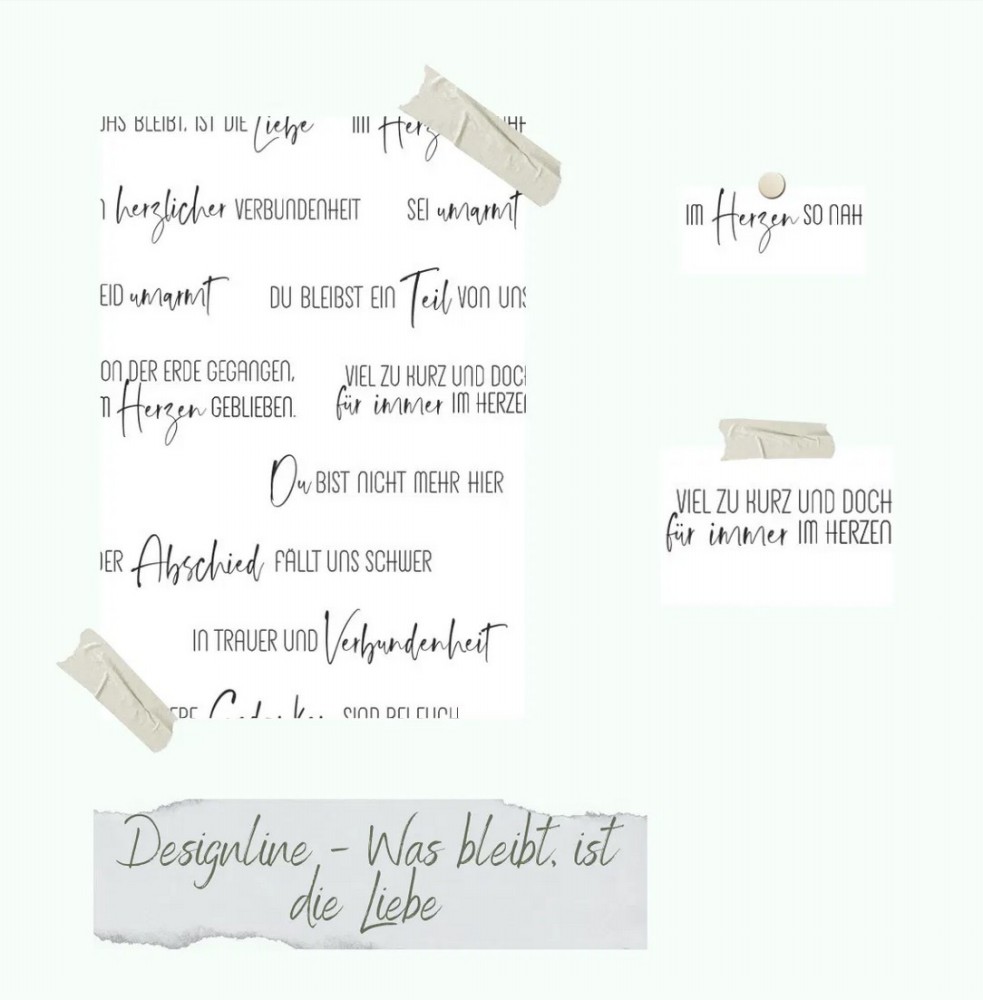 BLEIBT, IST DIE Liebe
IM
herzlicher VERBUNDENHEIT
SEI umarmt
umarmt
DU BLEIBST EIN Teil VON UNS
DER ERDE GEGANGEN,
Herzen GEBLIEBEN.
VIEL ZU KURZ UND DOCH
für immer IM HERZEN
Du BIST NICHT MEHR HIER
Abschied FÄLLT UNS SCHWER
IN TRAUER UND Verbundenheit
IM Herzen SO NAH
VIEL ZU KURZ UND DOCH
für immer IM HERZEN
Designline - Was bleibt, ist
die Liebe